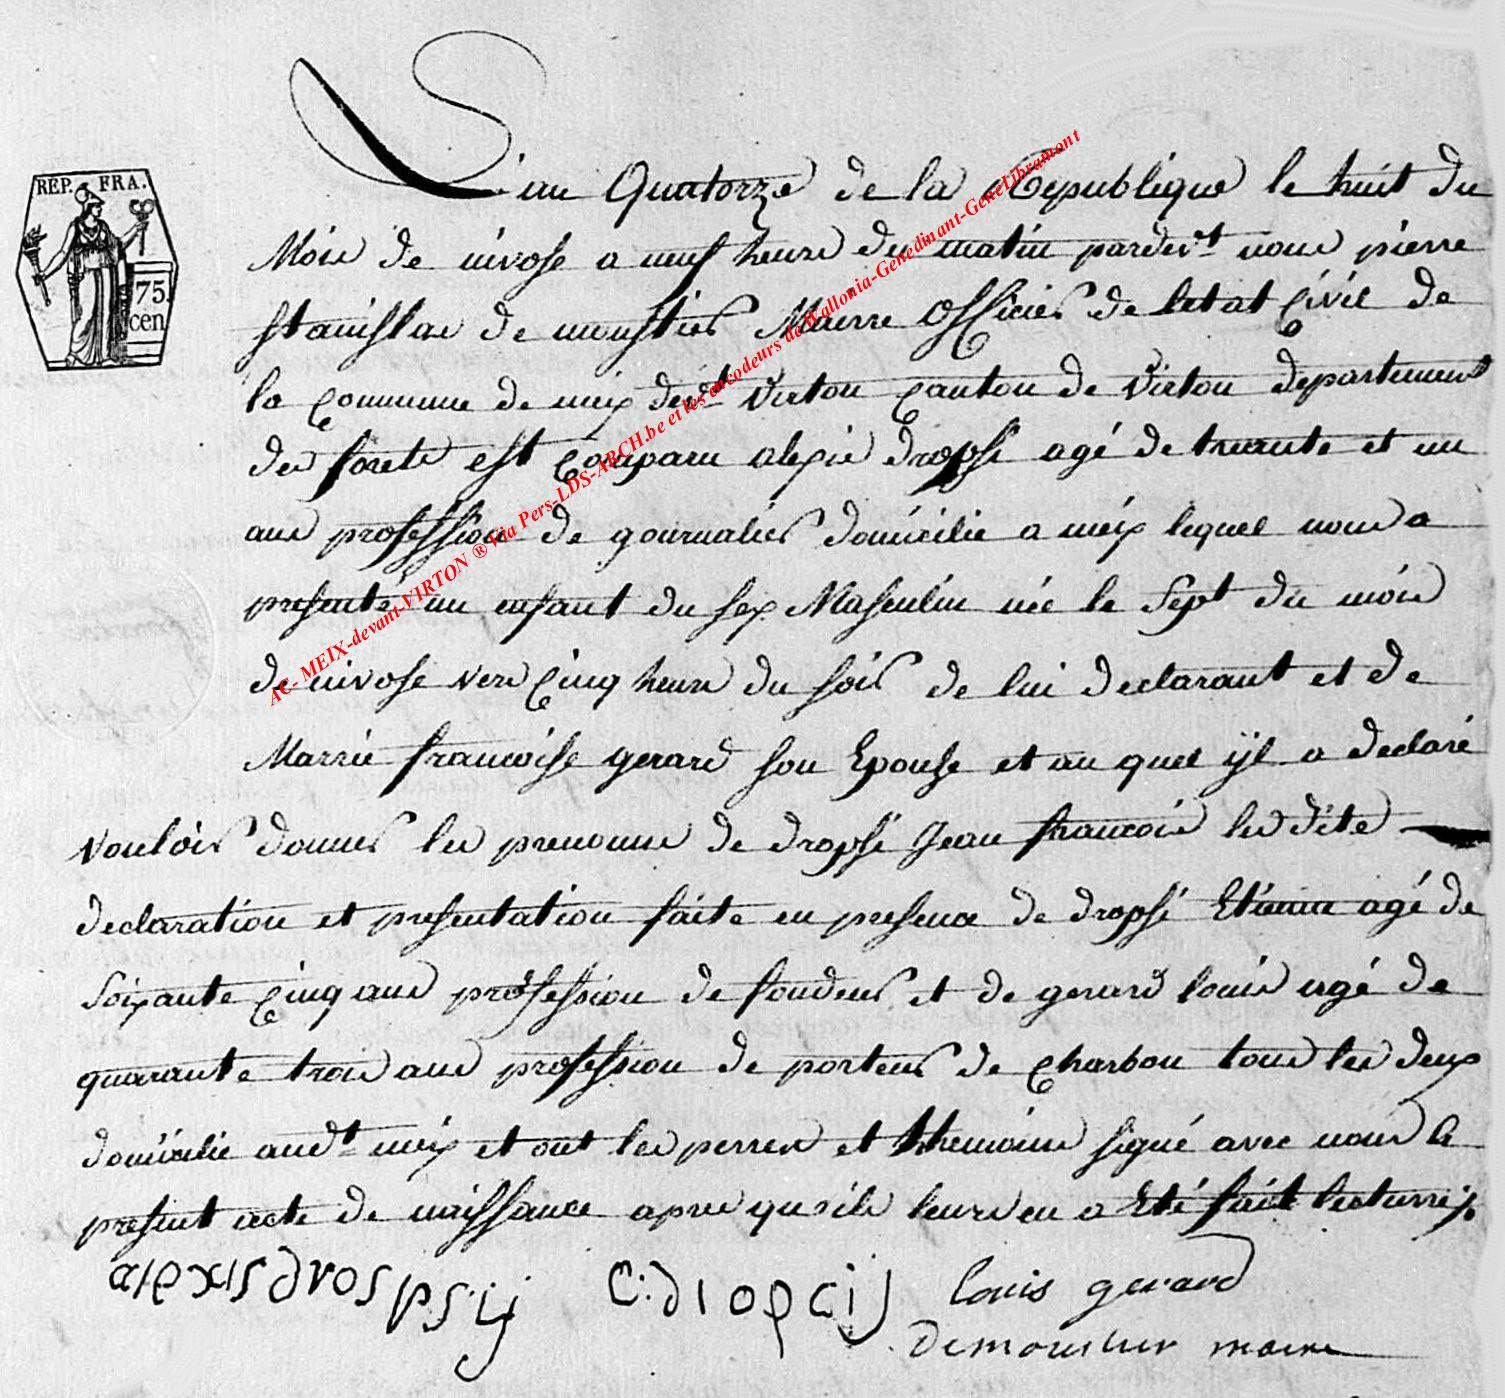 REP. FRA.
75.
cen
L'an Quatorze de la Republique le huit du
Mois de nivose a neuf heure du matin pardevt nous pierre
stanislas de moustier Mairre officier de letat Civil de
la Commune de meix devt Virton Canton de Virton departement
des forets est Comparu alexis dropsi agé de trarante et un
ans profession de gournalier domicilié a meix lequel nous a
presenté un enfant du sex Masculin née le sept du mois
de nivose vers Cinq heure du soir de lui declarant et de
Marrie francoisse gerard son Epouse et au quel ijl a declaré
vouloir donner les prenoms de dropsi Jean francois les dite
declaration et presentation faite en presence de dropsi Etienne agé de
soixante Cinq ans profession de fondeur et de gerard louis agé de
quarante trois ans profession de porteur de Charbon tous les deux
domicilié audt meix et ont les perres et themoins signé avec nous le
present acte de naissance apres qu'ils leurs en a Eté fait lecturre
alexis drospsij C:diopcij louis gerard
demoustier maire
AC- MEIX-devant-VIRTON ® Via Pers-LDS-ARCH.be et les encodeurs de Wallonia-Genedinant-GeneLibramont